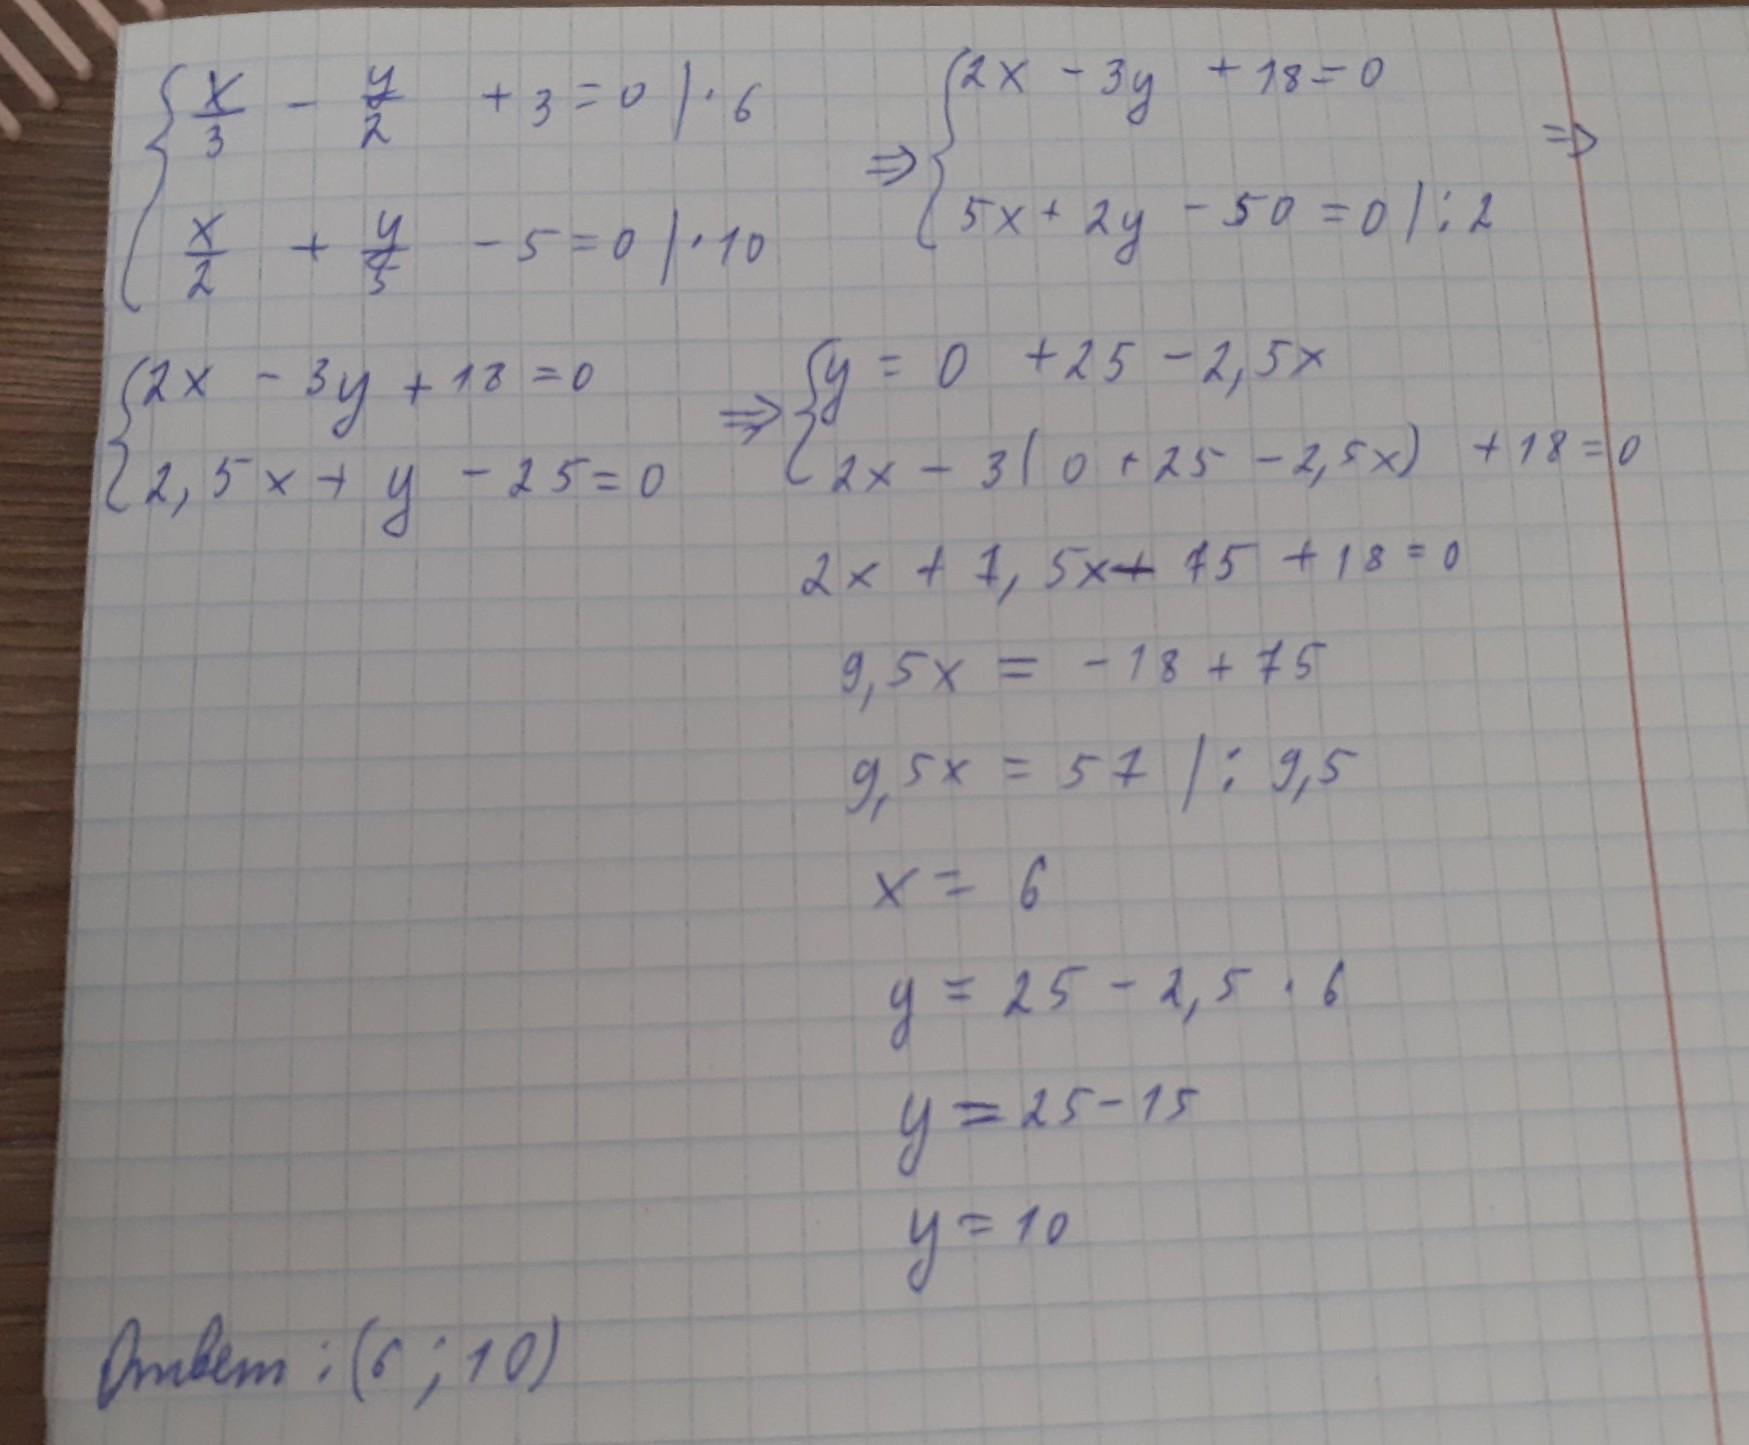 { x/3 - y/2 + 3 = 0 | · 6 ⇒ { 2x - 3y + 18 = 0 ⇒
{ x/2 + y/5 - 5 = 0 | · 10 { 5x + 2y - 50 = 0 | : 2
{ 2x - 3y + 18 = 0 ⇒ { y = 0 + 25 - 2,5x
{ 2,5x + y - 25 = 0 { 2x - 3(0 + 25 - 2,5x) + 18 = 0
2x + 7,5x - 75 + 18 = 0
9,5x = -18 + 75
9,5x = 57 | : 9,5
x = 6
y = 25 - 2,5 · 6
y = 25 - 15
y = 10
Ответ : (6 ; 10)